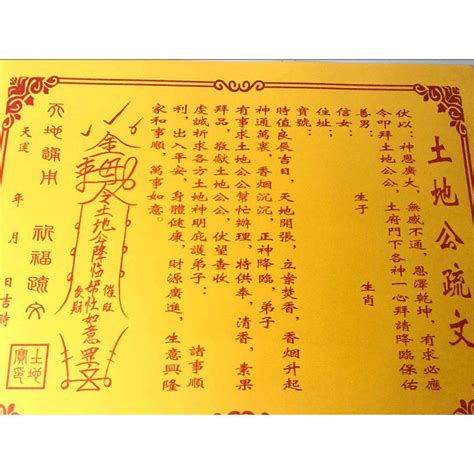 土地公疏文
伏以：神恩廣大，無感不通，恩澤乾坤，有求必應
令叩拜土地公公，土府門下各神一心拜請降臨保佑
善男：生于　生肖
信女：
住址：
寶號：
時值良辰吉日，天地開張，立案焚香，香烟升起
神通萬裏，香烟沉沉，正神降臨，弟子
有事求土地公公幫忙辦理，特供奉，清香，素果
拜品，敬獻土地公公，伏望查收
虔誠祈求各方土地神明庇護弟子：諸事順
利，出入平安，身體健康，財源廣進，生意興隆
家和事順，萬事如意。
金母令土地公降臨
如意
催旺
祈福疏文
天地通用
天運　年　月　日吉時
土地